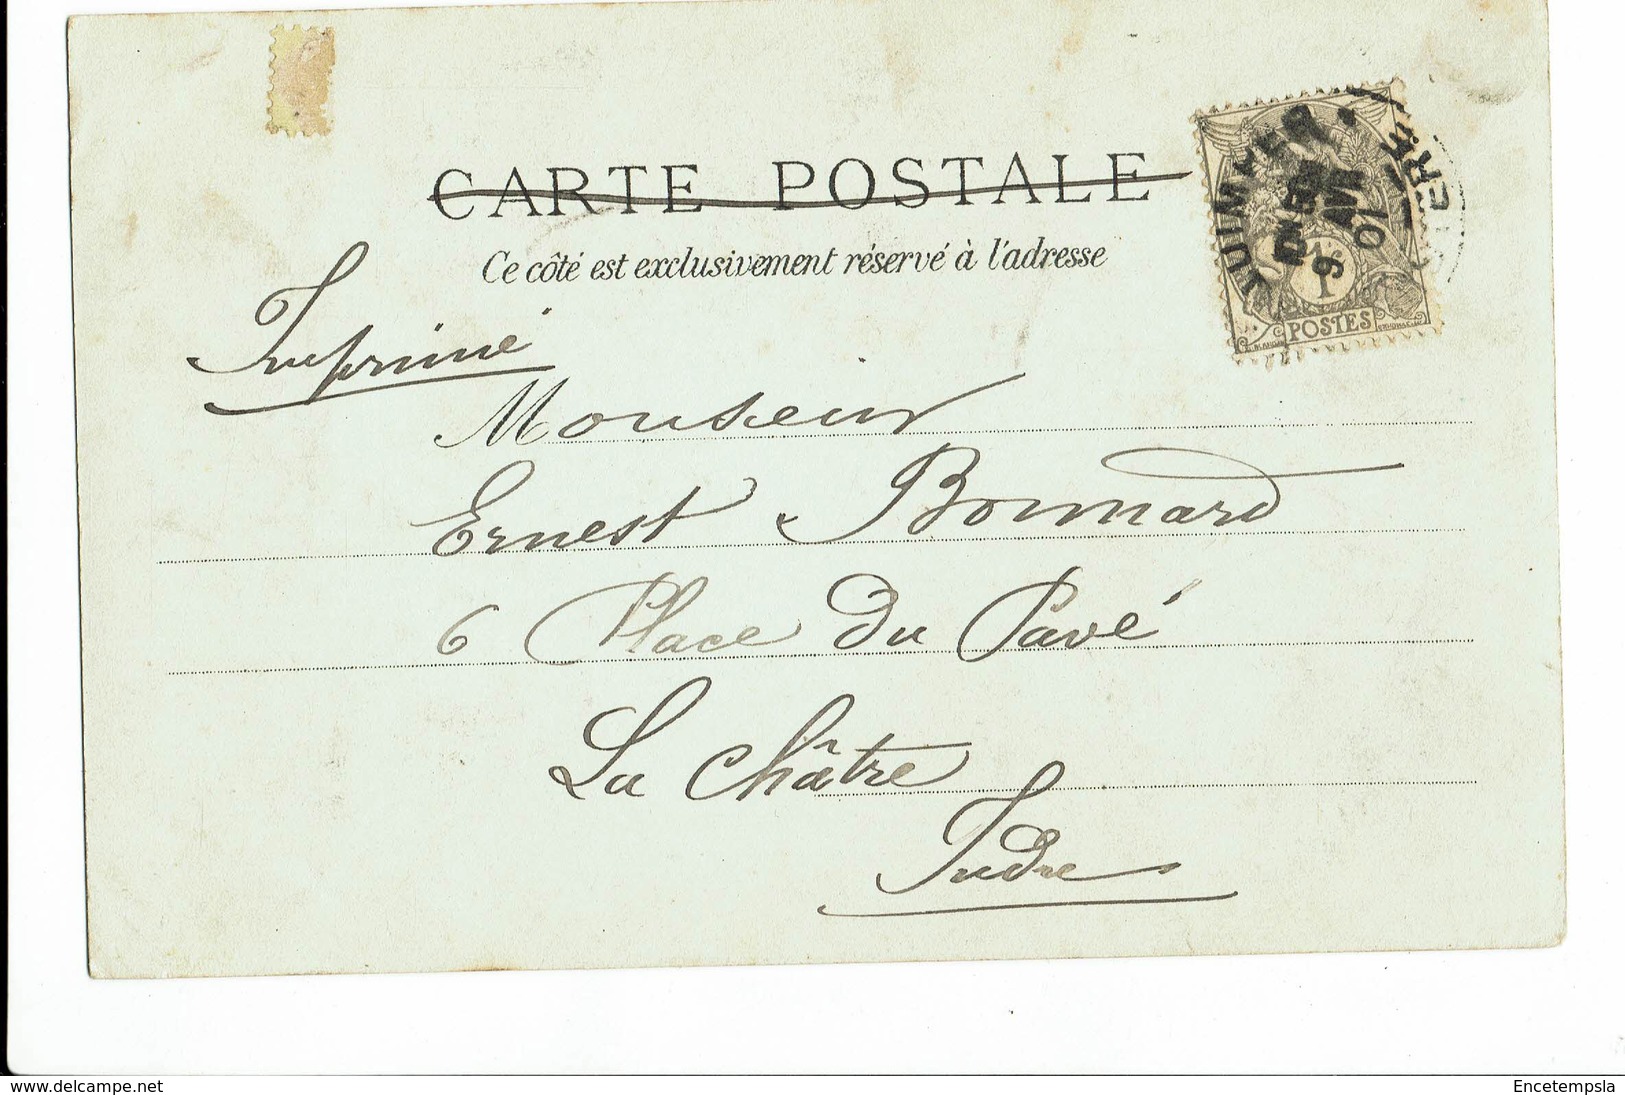 CARTE POSTALE
Ce côté est exclusivement réservé à l'adresse
Imprimé
Monsieur
Ernest Bonnard
6 Place du Pavé
La Châtre
Indre
QUIMPER
9
AVR
01
1
POSTES
www.delcampe.net
Encetempsla